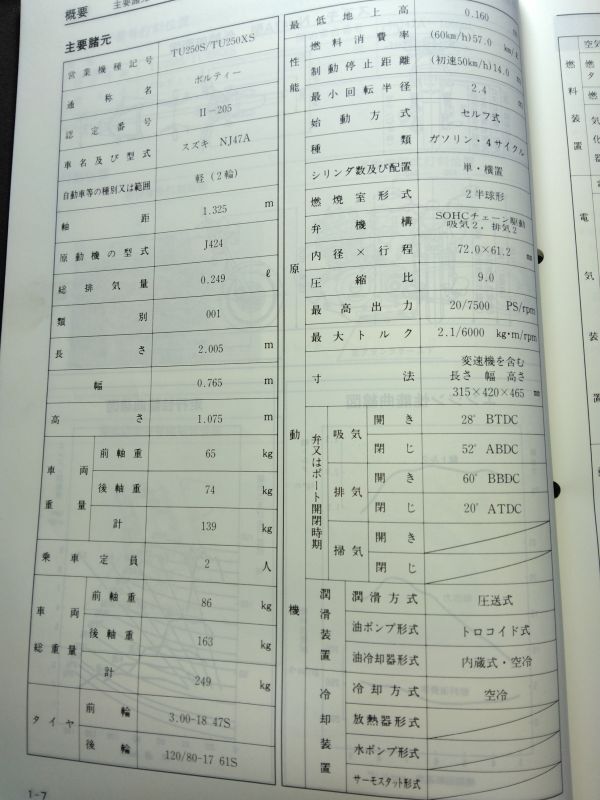 概要
主要諸元
主要諸元
営業機種記号 TU250S/TU250XS
通称名 ボルティー
認定番号 II-205
車名及び型式 スズキ NJ47A
自動車等の種別又は範囲 軽(2輪)
軸距 1.325 m
原動機の型式 J424
総排気量 0.249 ℓ
類別 001
長さ 2.005 m
幅 0.765 m
高さ 1.075 m
車両重量 前軸重 65 kg
後軸重 74 kg
計 139 kg
乗車定員 2 人
車両総重量 前軸重 86 kg
後軸重 163 kg
計 249 kg
タイヤ 前輪 3.00-18 47S
後輪 120/80-17 61S
1-7
最低地上高 0.160
性能 燃料消費率 (60km/h)57.0
制動停止距離 (初速50km/h)14.0
最小回転半径 2.4
原動機
始動方式 セルフ式
種類 ガソリン・4サイクル
シリンダ数及び配置 単・横置
燃焼室形式 2半球形
弁機構 SOHCチェーン駆動
吸気2, 排気2
内径×行程 72.0×61.2
圧縮比 9.0
最高出力 20/7500 PS/rpm
最大トルク 2.1/6000 kg・m/rpm
寸法 変速機を含む
長さ 幅 高さ
315×420×465 mm
弁又はポート開閉時期
吸気 開き 28° BTDC
閉じ 52° ABDC
排気 開き 60° BBDC
閉じ 20° ATDC
掃気 開き
閉じ
潤滑装置 潤滑方式 圧送式
油ポンプ形式 トロコイド式
油冷却器形式 内蔵式・空冷
冷却装置 冷却方式 空冷
放熱器形式
水ポンプ形式
サーモスタット形式
空気
燃料装置
電気